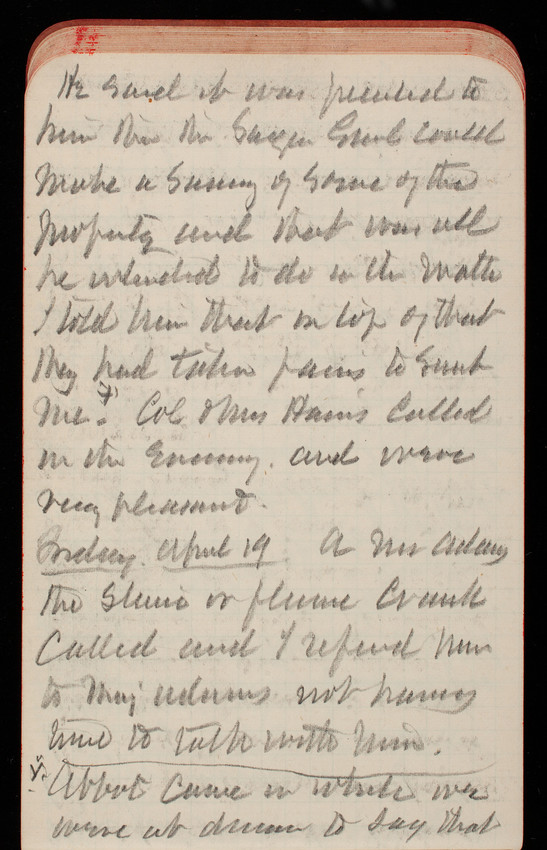 He said it was presented to
him then the Sayer Govt could
make a Saving of Some of the
property and that was all
he intended to do in the matter
I told him that on top of that
they had taken pains to
me. Col & Mrs Hains Called
in the Evening and were
very pleasant.
Friday April 19 A Mr Adams
the or flume Crank
Called and I referred him
to Maj Adams not having
time to talk with him.
Abbot Came in while we
were at dinner to say that